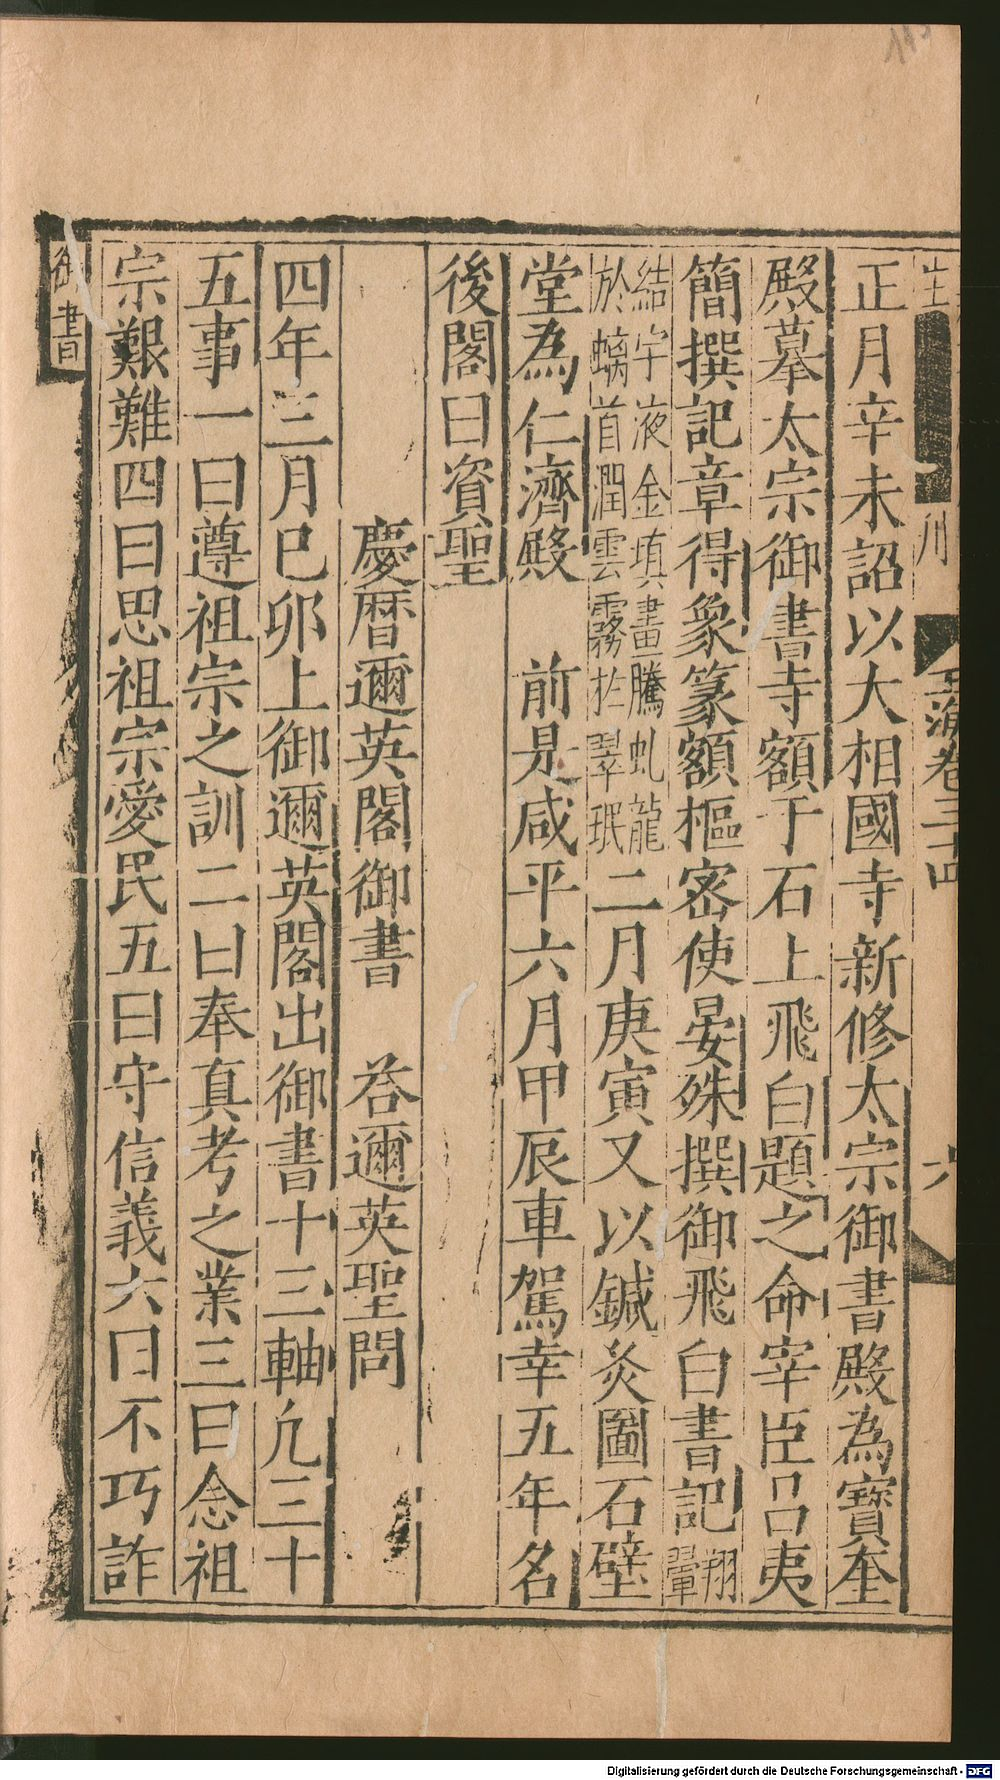 正月辛未詔以大相國寺新修太宗御書殿為寶奎
殿摹太宗御書寺額于石上飛白題之命宰臣呂夷
簡撰記章得象篆額樞密使晏殊撰御飛白書記翔翬
結字液金塡畫騰虬龍
於螭首潤雲霧扵翠珉二月庚寅又以鍼灸圖石壁
堂為仁濟殿 前是咸平六月甲辰車駕幸五年名
後閣曰資聖
慶曆邇英閣御書 答邇英聖問
四年三月巳卯上御邇英閣出御書十三軸凢三十
五事一曰遵祖宗之訓二曰奉真考之業三曰念祖
宗艱難四曰思祖宗愛民五曰守信義六曰不巧詐
御書
玉海卷三十四
六
Digitalisierung gefördert durch die Deutsche Forschungsgemeinschaft - DFG